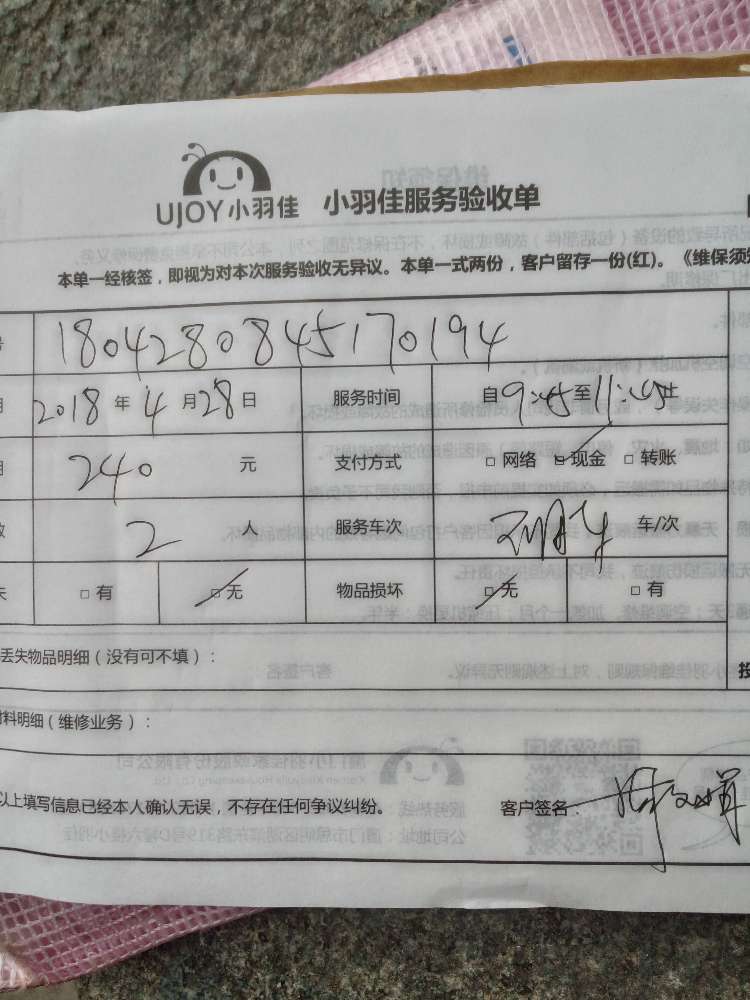 UJOY小羽佳 小羽佳服务验收单
本单一经核签，即视为对本次服务验收无异议。本单一式两份，客户留存一份(红)。《维保须知
号 1804280845170194
期 2018 年 4 月 28 日 服务时间 自 9:45 至 11:45 止
用 240 元 支付方式 □ 网络 □ 现金 □ 转账
数 2 人 服务车次 车/次
失 □ 有 □ 无 物品损坏 □ 无 □ 有
丢失物品明细（没有可不填）： 投
材料明细（维修业务）：
以上填写信息已经本人确认无误，不存在任何争议纠纷。 客户签名：